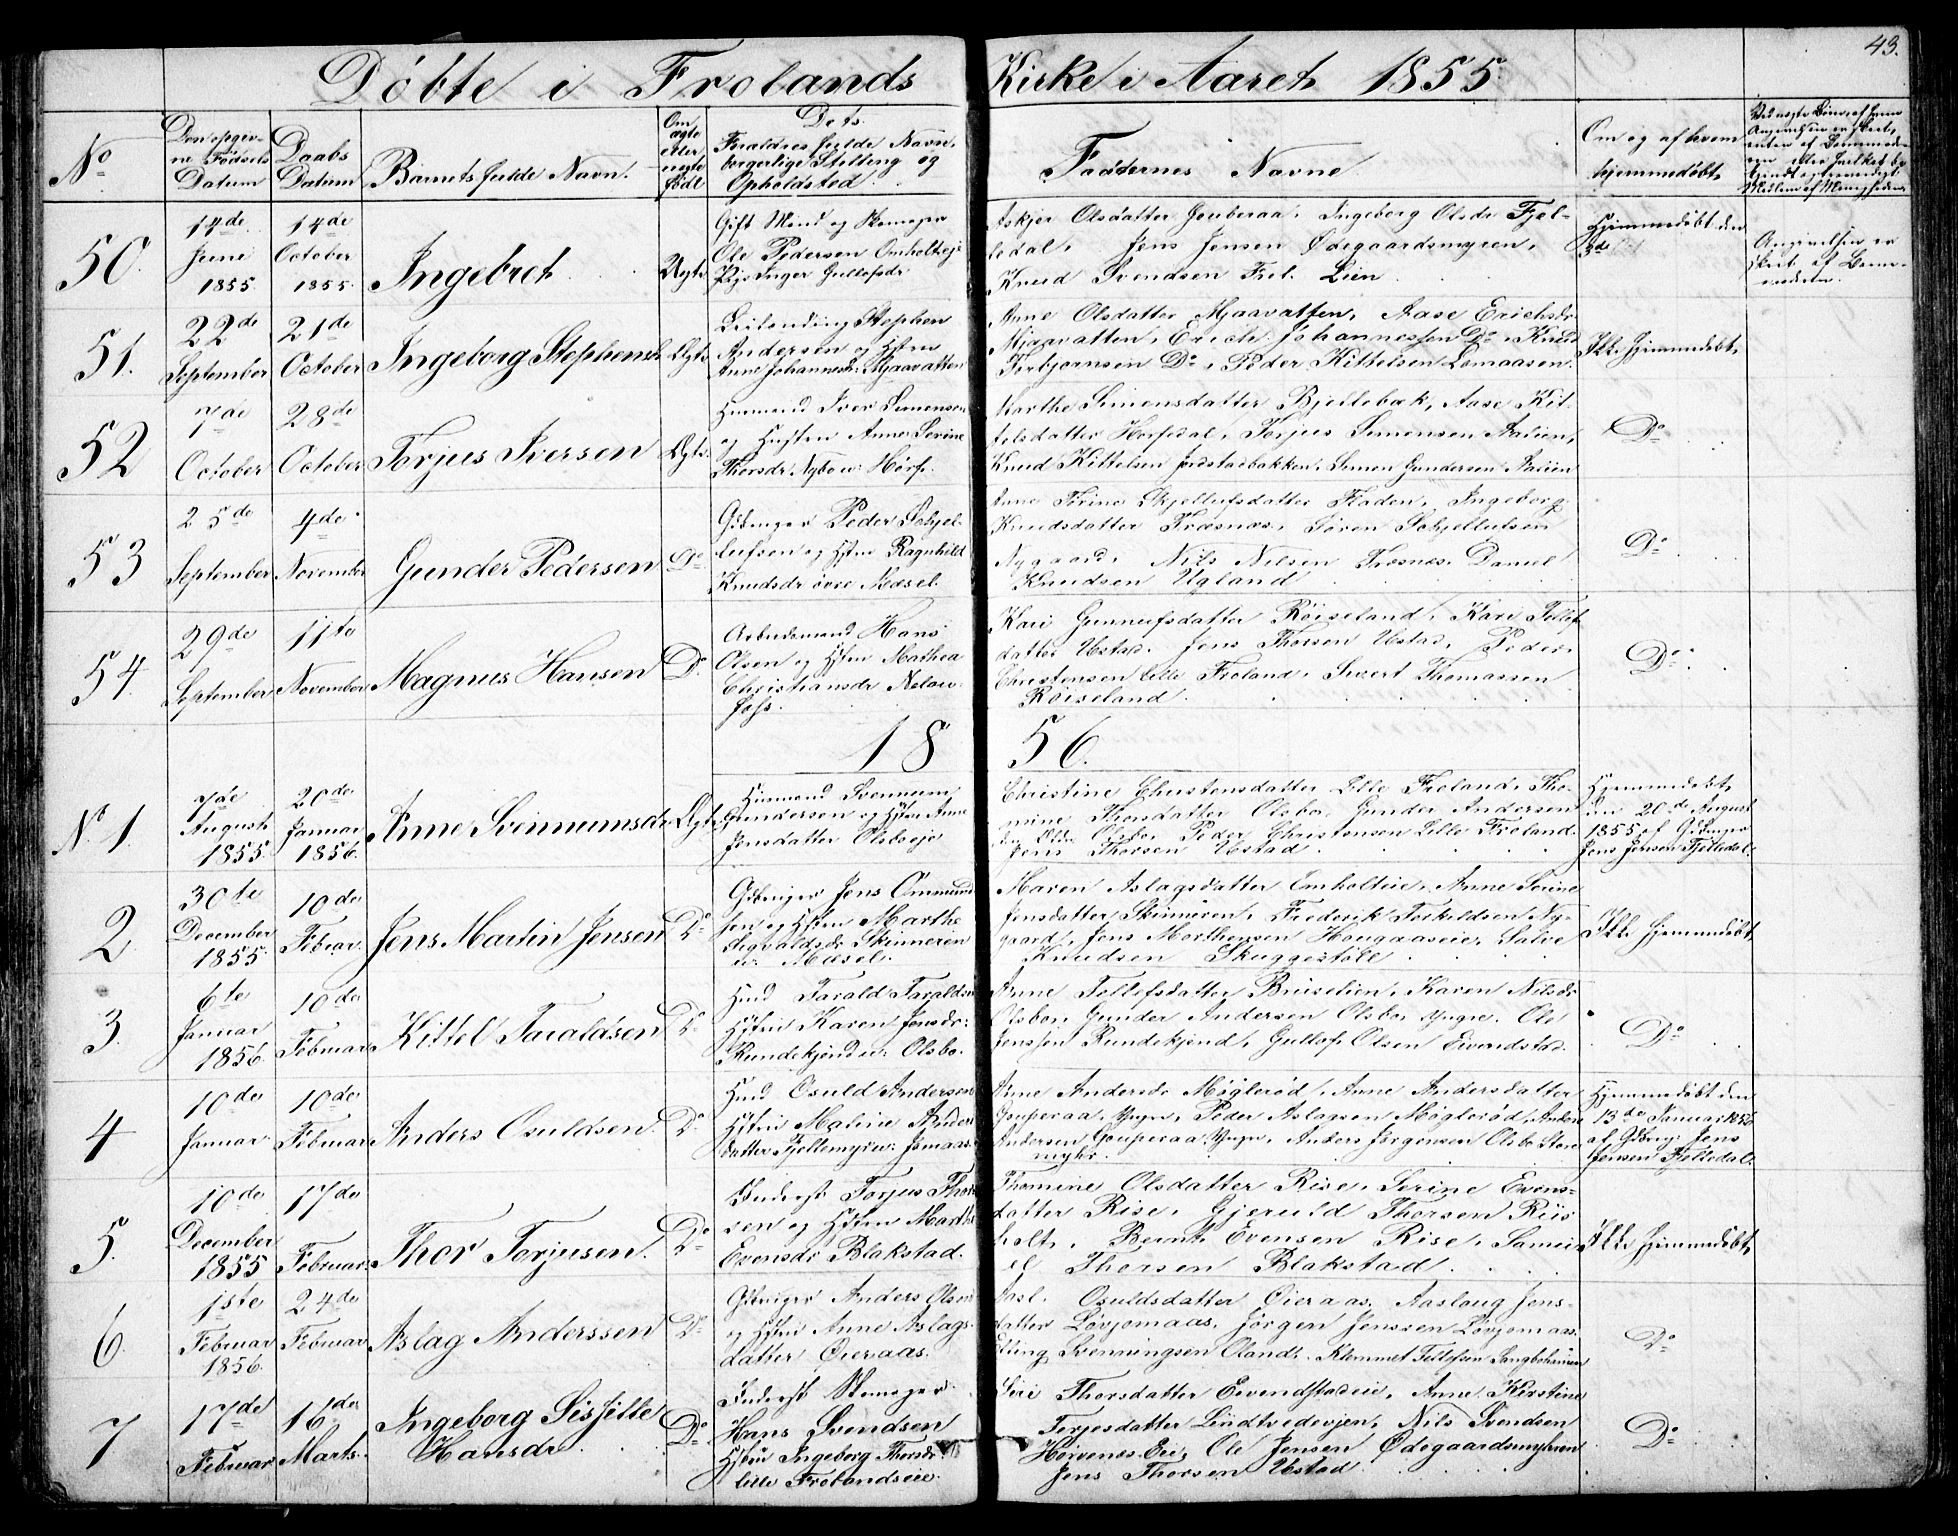 43.
Döbte i Frolands Kirke i Aaret 1855.
No
Den opgivne Fødsels Datum
Daabs Datum
Barnets fulde Navn.
Om ægte eller uægte født
Dets Foraldres fulde Navn, borgerlige Stilling og Opholdsted.
Faddernes Navne
Om og af hvem hjemmedøbt,
50.
14de Juni 1855.
14de October 1855.
Ingebret
Uægte
Gift Mand og Skomager
Ole Pedersen Omholtseje
Pige Inger Gullofsdr
Askjer Olsdatter Gouberaa, Ingeborg Olsdr Fjel-
ledal, Jens Jensen Ødegaardsmyren,
Knud Svendsen Frol. Lien
Hjemmedøbt den
Angivelsen er
skeet af Barne-
moderen.
51.
22de September
21de October
Ingeborg Stephensd.
Ægte
Leilending Stephen
Andersen og Hstru
Anne Johannesdr: Mjaavatten
Anne Olsdatter Mjaavatten, Aase Erichsdr
Mjaavatten, Erich Johannessen Do, Knud
Torbjørnsen Do, Peder Kittelsen Lomaasen.
Ikke hjemmedøbt,
52
7de October
28de October
Torjus Iversen
Ægte
Huusmand Iver Simonsen
og Hustru Anne Serine
Thorsdr. Nybo u: Hørf.
Marthe Simensdatter Bjellebæk, Aase Kit-
telsdatter Horfedal, Torjus Simonsen Aalien,
Knud Kittelsen Jordstadbakken, Simon Gundersen Aalien
Do
53
25de September
4de November
Gunder Pedersen
Do
Gbruger Peder Schjel-
lufsen og Hstru Ragnhild
Knudsdr øvre Mæsel.
Anne Trine Skjellufsdatter Floden, Ingeborg
Knudsdatter Træsnæs, Søren Schjellufsen
Nygaard, Nils Nilsen Træsnæs. Daniel
Knudsen Ugland
Do
54.
29de September
11te November
Magnus Hansen
Do
Arbeidsmand Hans
Olsen og Hstru Mathea
Christiansdr Nelau-
foss.
Kari Gunnufsdatter Røiseland, Kari Tellef
datter Ustad. Jens Thorsen Ustad, Peder
Christensen Lille Froland, Sivert Thomassen
Røiseland
Do
1856.
No 1.
7de August 1855.
20de Januar 1856.
Anne Svennumsdr
Ægte
Huusmand Svennum
Gundersen og Hstru Anne
Jensdatter Olsboeje
Christine Christensdatter Lille Froland, Tho-
mine Thorsdatter Olsbo, Gunder Andersen
Olsbo, Peder Christensen Lille Froland.
Jens Thorsen Ustad
Hjemmedøbt,
den 20de August
1855 af Gbruger
Jens Jensen Fjelledal.
2
30te December 1855.
10de Febuar.
Jens Martin Jensen
Do
Gbruger Jens Ommund
sen og Hstru Marthe
Sigvaldsdr Skinneren
u: Mæsel.
Maren Aslagsdatter Omholteie, Anne Serine
Jensdatter Skinneren, Frederik Torkeldsen Ny-
gaard, Jens Morthensen Hougaaseie, Salve
Knudsen Skuggestöll
Ikke hjemmedøbt,
3.
6te Januar 1856.
10de Februar
Kittel Taraldsen
Do
Hmd Tarald Taraldsen
Hstru Karen Jensdr:
Rundekjønd u: Olsbo.
Anne Tellefsdatter Bruselien, Karen Nilsdr
Olsbo, Gunder Andersen Olsbo yngre. Ole
Jenssen Rundekjønd, Gullof Olsen Eivendstad.
Do
4
10de Januar
10de Februar
Anders Osuldsen.
Do
Hmd Osuld Andersen
Hstru Maline Ander
datter Fjellemyr u: Jomaas.
Anne Andersdr Møglerød, Anne Andersdatter
Gouperaa, Yngr, Peder Aslagsen Møglerød, Anders
Andersen Gouperaa Yngr, Anders Jørgensen Olsbo Store
myhr.
Hjemmedøbt den
13de Januar 1856
af Gbrug: Jens
Jensen Fjelledal.
5.
10de December 1855
17de Februar.
Thor Torjusen.
Do
Inderst Torjus Thor
sen og Hstru Marthe
Evensdr Blakstad.
Thomine Olsdatter Rise, Serine Evens-
datter Rise, Gjeruld Thorsen Riis
holt, Bernt Evensen Rise, Samu-
el Thorsen Blakstad
Ikke hjemmedøbt,
6.
1ste Februar 1856.
24de Februar
Aslag Anderssen
Do
Gbruger Anders Olsen
og Hstru Anne Aslags-
datter Øieraas.
Aasl. Osuldsdatter Øieraas, Aaslaug Jens-
datter Løvjomaas, Jørgen Jenssen Løvjomaas,
Svenningsen Oland, Klemmet Tellefsen
Do
7
17de Februar
16de Marts.
Ingeborg Sissille
Hansdr
Do
Inderst Skomager
Hans Svendsen
Hstru Ingeborg Thorsdr
lille Frolandseie.
Siri Thorsdatter Eivendstadeie, Anne Kirstine
Terjesdatter Lindtvedevjen, Nils Svendsen
Hørvenes Eie, Ole Jensen Ødegaardsmyhren
Jens Thorsen Ustad
Do